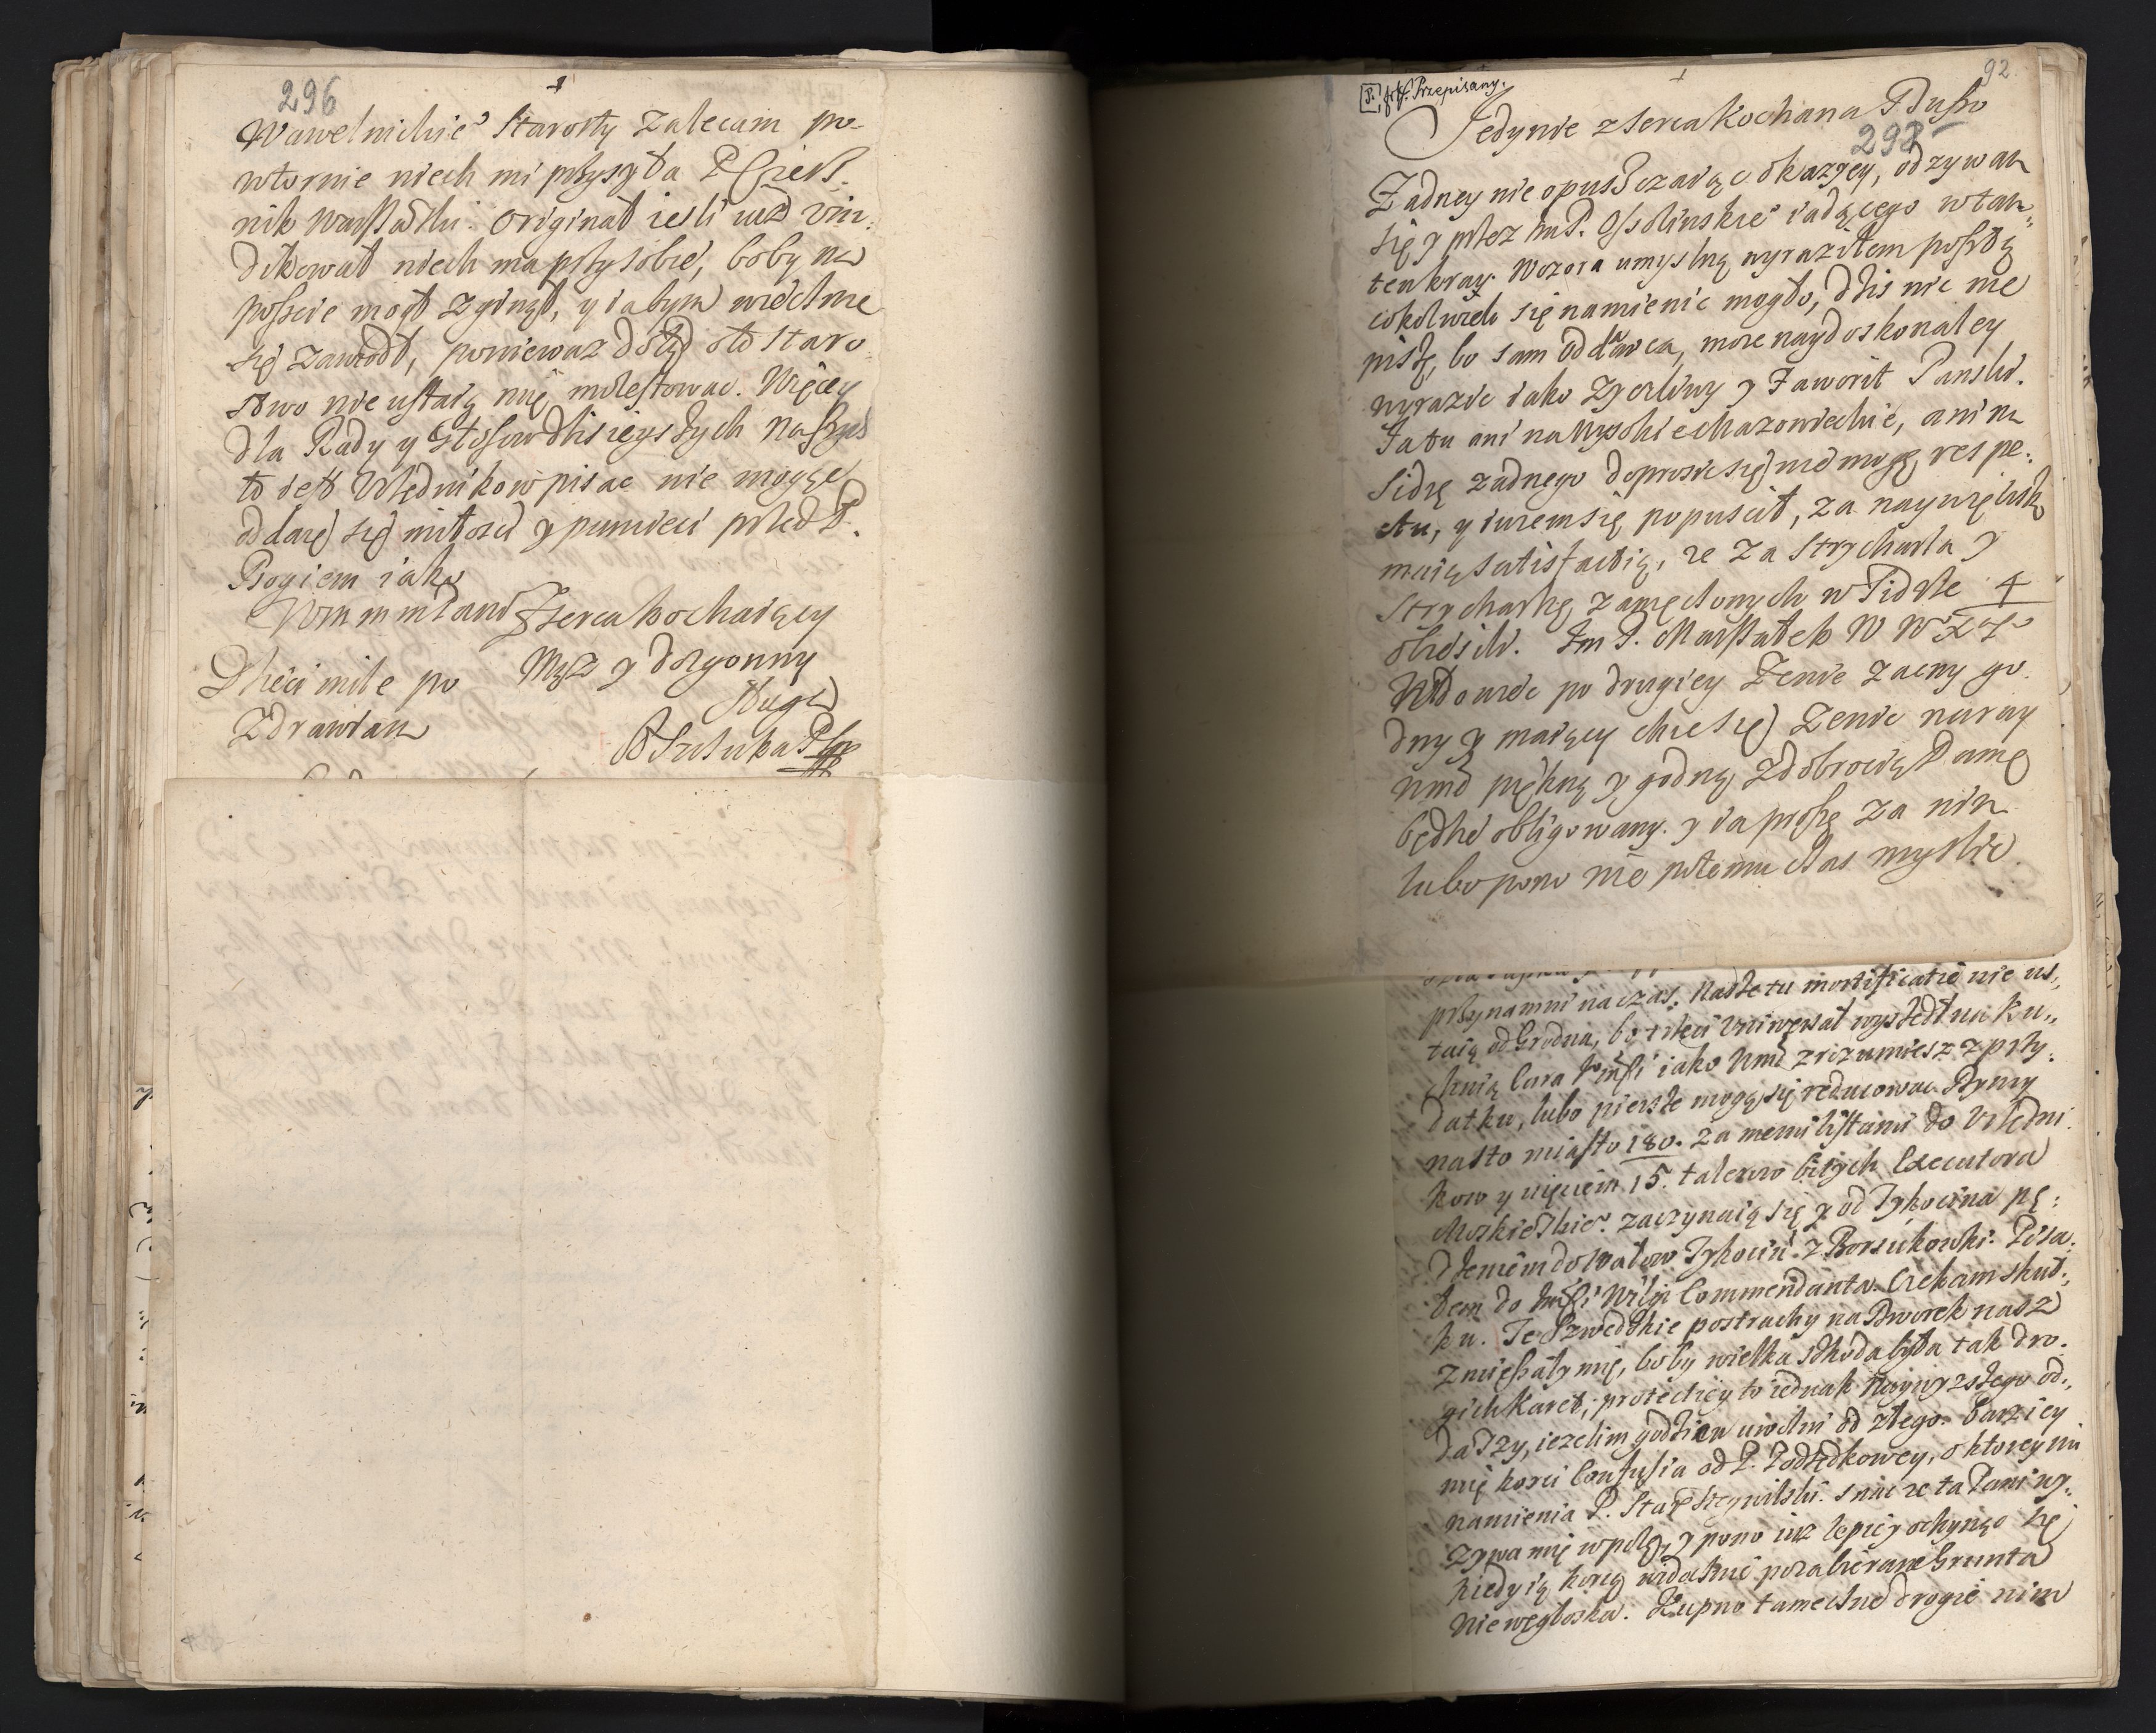 296
Wawelnickie° Starosty zalecam po-
wtornie niech mi przysyła P Cześ
nik Warszawski. Originał iesli iuż vin:
dikował niech ma przy sobie, boby na
poszcie mogł zginąć, y ia bym wiecznie
się zawiodł, ponieważ dotąd oto Staro
stwo nie ustaią mię molestowac. Więcey
dla Rady y Głosow dzisieyszych naszych
to iest Urzędnikow pisac nie mogąc
oddaię się miłosci y pamieci przed P.
Bogiem iako
Wm m m Panny z serca kochaiący
Mąż y dozgonny
sługa
Dzieci mile po
zdrawiam
92.
Przepisany.
Jedynie z serca Kochana Duszo
297
Zadney nie opuszczaiąc okazyey, odzywam
się y przez Im P. Ossolinskie° iadącego w tam:
ten kray. Wczora umyslną wyraziłem posztą
cokolwiek się namienic mogło, dzis nic nie
piszę, bo sam oddawca, moze naydoskonaley
wyrazic iako zyczliwy y Faworit Panski.
Ja tu ani na Wysokie Mazowieckie, ani na
Sidrę zadnego doprosic się nie mogę respe:
ktu, y iuzem się popuscił, za naywiększą
maiąc satisfactią, ze za Strycharza y
Strycharkę zamęczonych w Sidrze 4
obiesili. Im P. Marszałek W W X L°
Wdowiec po drugiey Zenie zacny go:
dny y maięcy chce się zenic naray
Wmć piękną y godną z dobrocią Damę
będzie obligowany. y ia proszę za nim
lubo pono nie potemu czas myslic
przynamni na czas. Nasze tu mortificatie nie us,,
taią od Grodna, bo trzeci Uniwersał wyszedł na Ku,,
chnią Cara Jmsci iako Wmć zrozumiesz z przy:
datku, lubo pierwsze mogą się reducowac Rymy
na sto miasto 180. Za memi listami do Urzędni
kow y więciem 15. talerow bitych Executora
Moskiewskie°. zaczynaią się y od Tykocina pę:
dzeniem do wałow Tykocin: z Borsukowki. Pisa:
łem do Jmsci Willy Commendanta. Czekam skut:,
ku. Te Szwedzkie postrachy na Dworek nasz
zmieszały mię, boby wielka szkoda była tak dro:
gich Karet, protectiey to iednak Naywyzszego od:,
daszy, iezelim godzien uwolni od złego. Barziey
mię korci Confusia od P. Podsędkowey, o ktorey mi
namienia P. Star Stęgwilski. snac ze ta Pani wy:
zywa mię w pole, y pono iuz lepiey ochynąc się
kiedy ią korcą widocznie pozabierane Grunta
Niewęgłoska. Zupno tameczne drogie nim